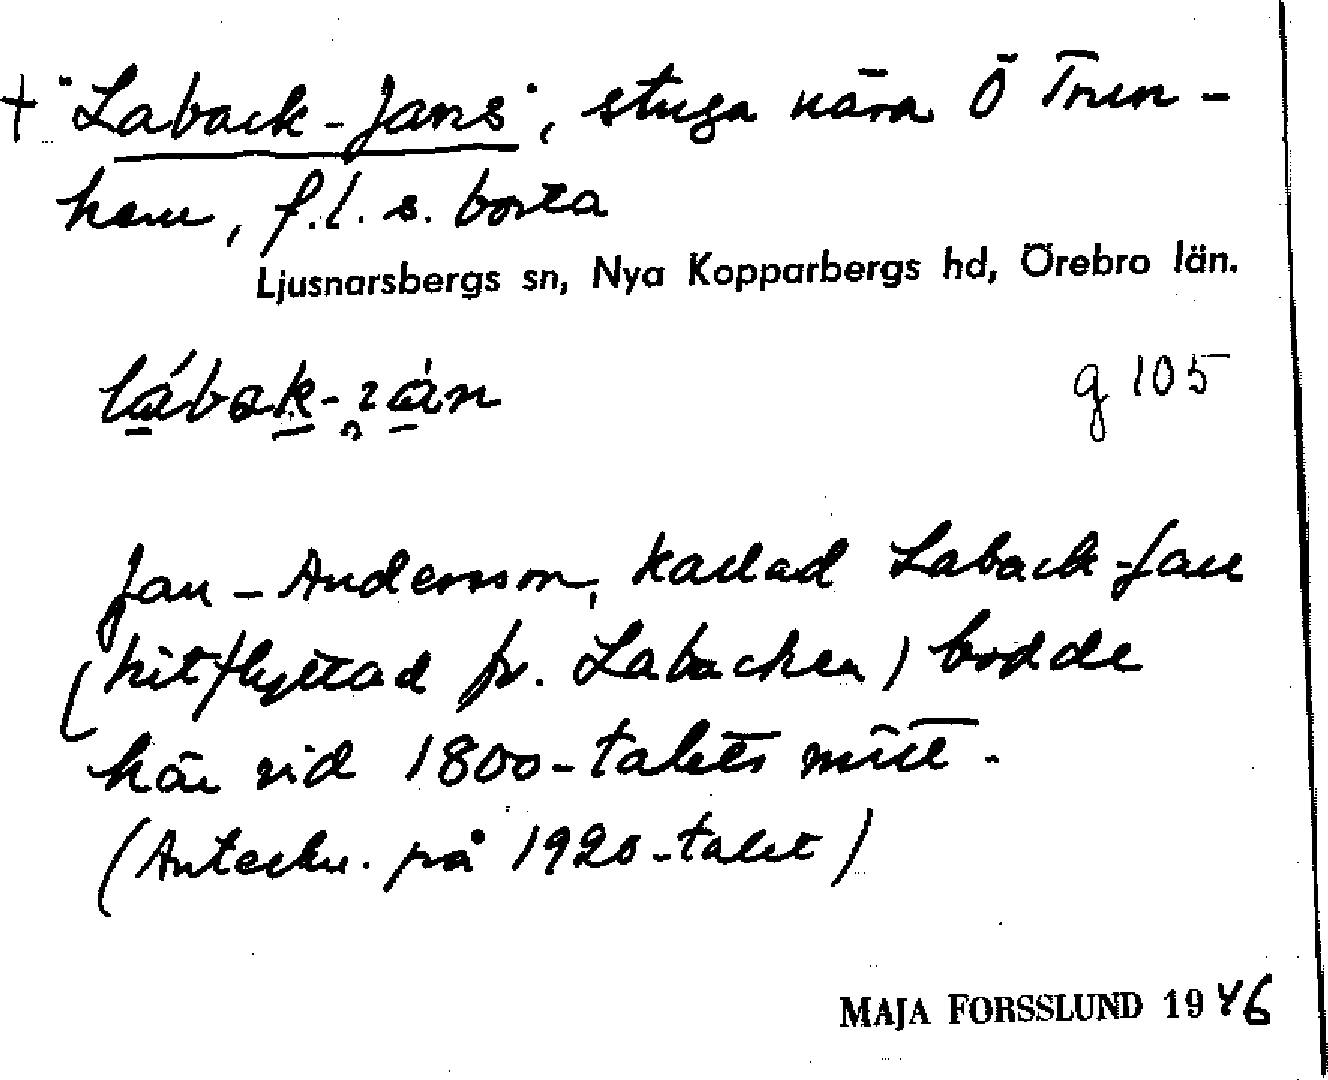 + "Laback-Jans", stuga nära Ö Trun-
hem, f.l.s. borta
Ljusnarsbergs sn, Nya Kopparbergs hd, Örebro län.
lábak-
g 105
Jan-Andersson, kallad Laback-Jan
(hitflyttad fr. Labacken) bodde
här vid 1800-talets mitt.
(Anteckn. på 1920-talet)
MAJA FORSSLUND 1946